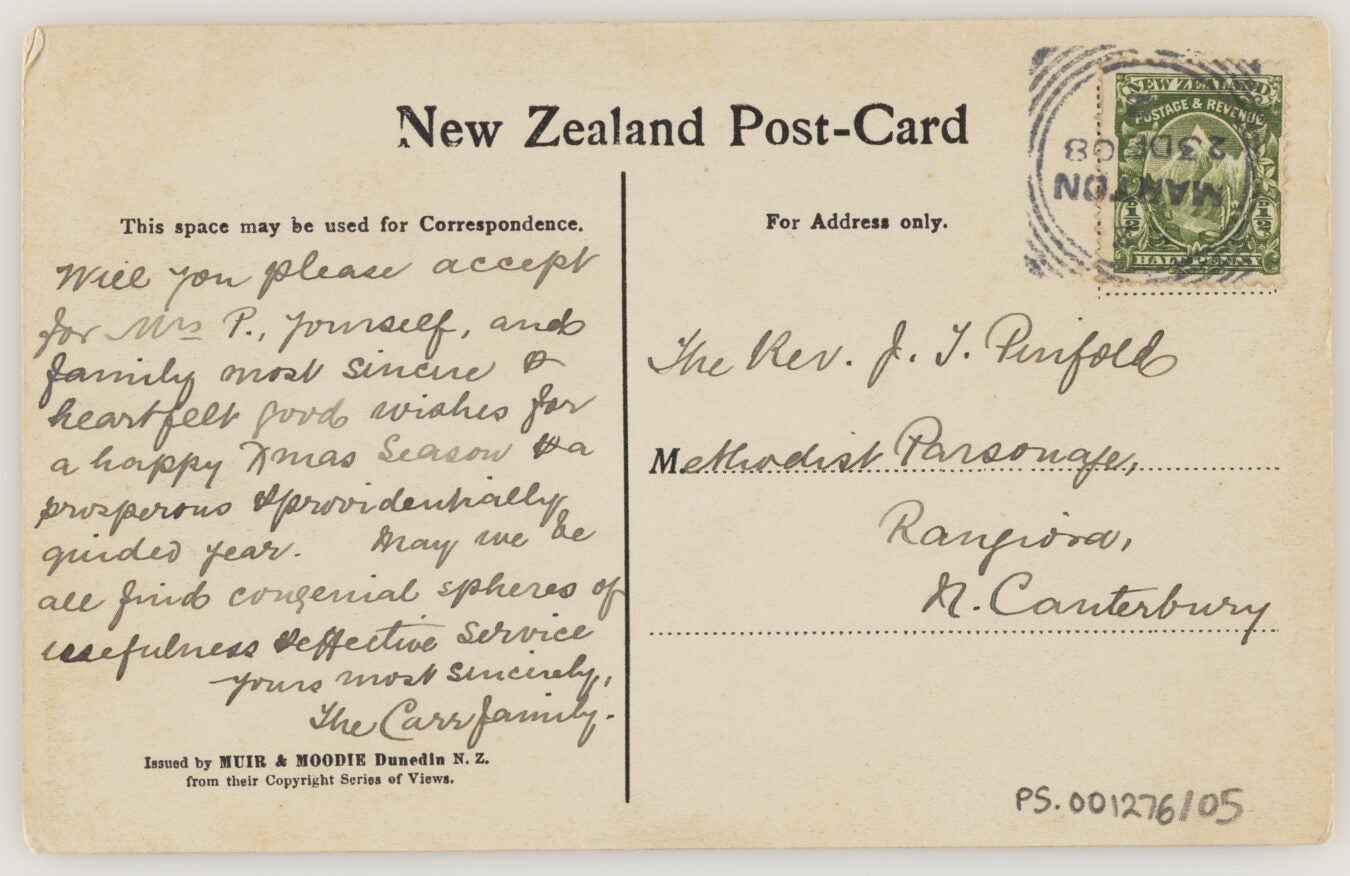 New Zealand Post-Card
This space may be used for Correspondence.
Will you please accept
for Mrs P., yourself, and
family most sincere &
heartfelt good wishes for
a happy Xmas Season & a
prosperous & providentially
guided year. May we be
all find congenial spheres of
usefulness & effective service
yours most sincerely,
The Carr family.
Issued by MUIR & MOODIE Dunedin N. Z.
from their Copyright Series of Views.
For Address only.
NEW ZEALAND
POSTAGE & REVENUE
1/2 1/2
HALF PENNY
MARTON
23 DE 08
The Rev. J. T. Pinfold
Methodist Parsonage,
Rangiora,
N. Canterbury
PS.001276/05